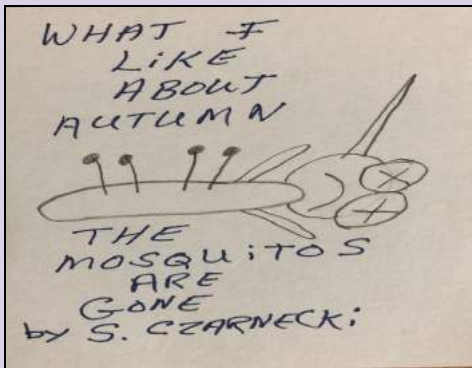 WHAT I
LiKE
ABOUT
AUTUMN
THE
MOSQUiTOS
ARE
GONE
by S. CZARNECKi